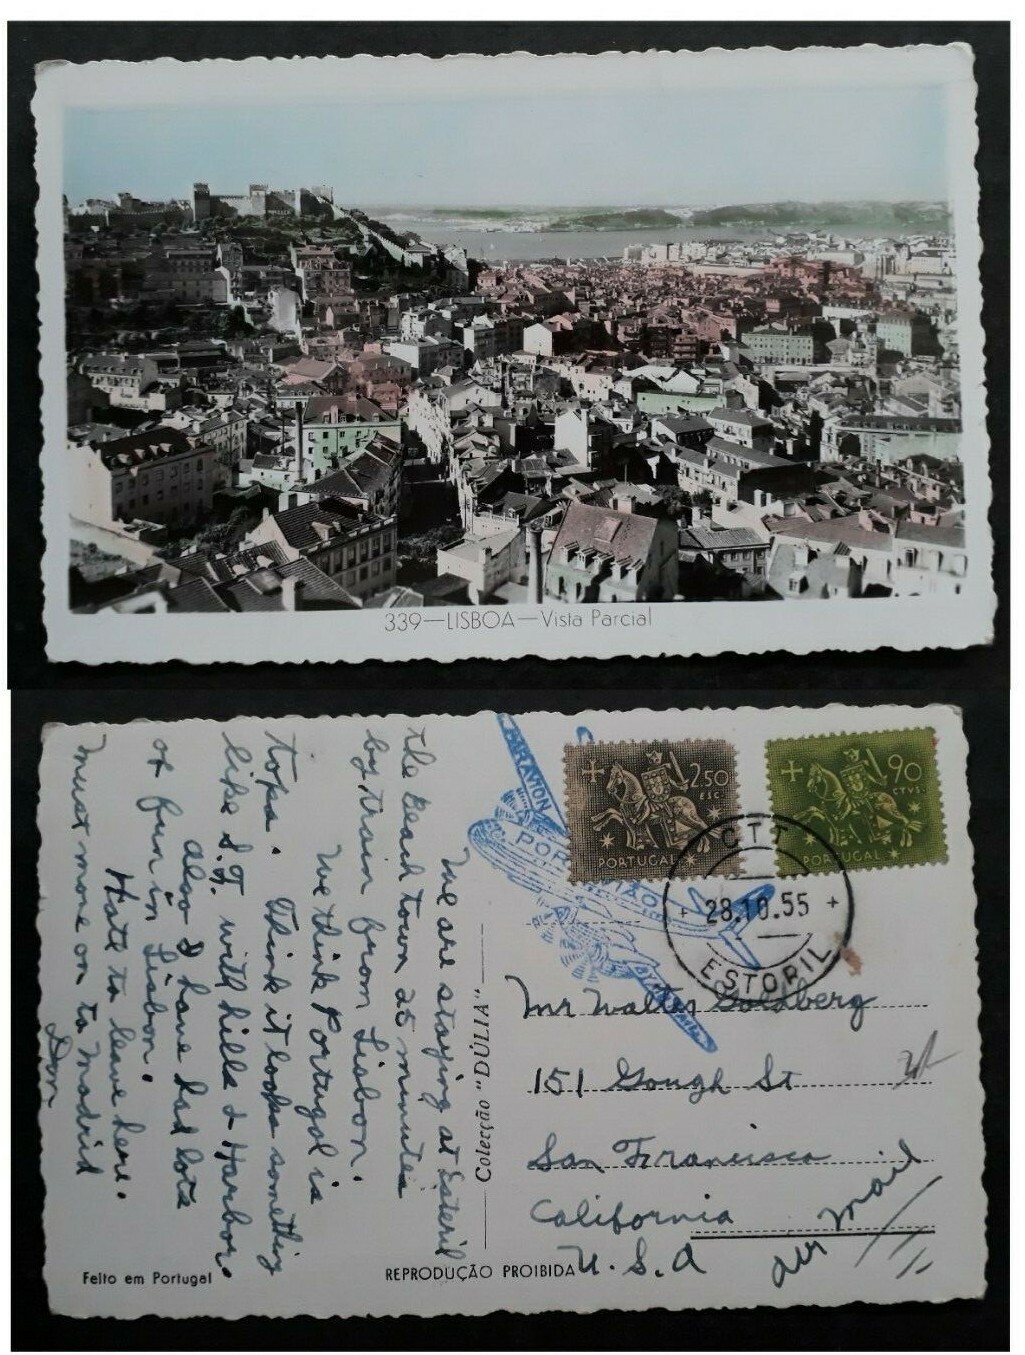 339—LISBOA—Vista Parcial
We are staying at Esteril
the Beach town 25 minutes
by train from Lisbon.
We think Portugal is
tops. Think it looks something
like S.F. with hills & Harbor.
Also I have had lots
of fun in Lisbon.
Hate to leave here.
must move on to Madrid
Don
Feito em Portugal
Colecção "DÚLIA"
REPRODUÇÃO PROIBIDA
PAR AVION
POR AVIÃO
2$50
ESC.
PORTUGAL
$90
CTVS.
PORTUGAL
CTT
28.10.55
ESTORIL
Mr Walter Goldberg
151 Gough St
San Francisco
California
U.S.A
air mail